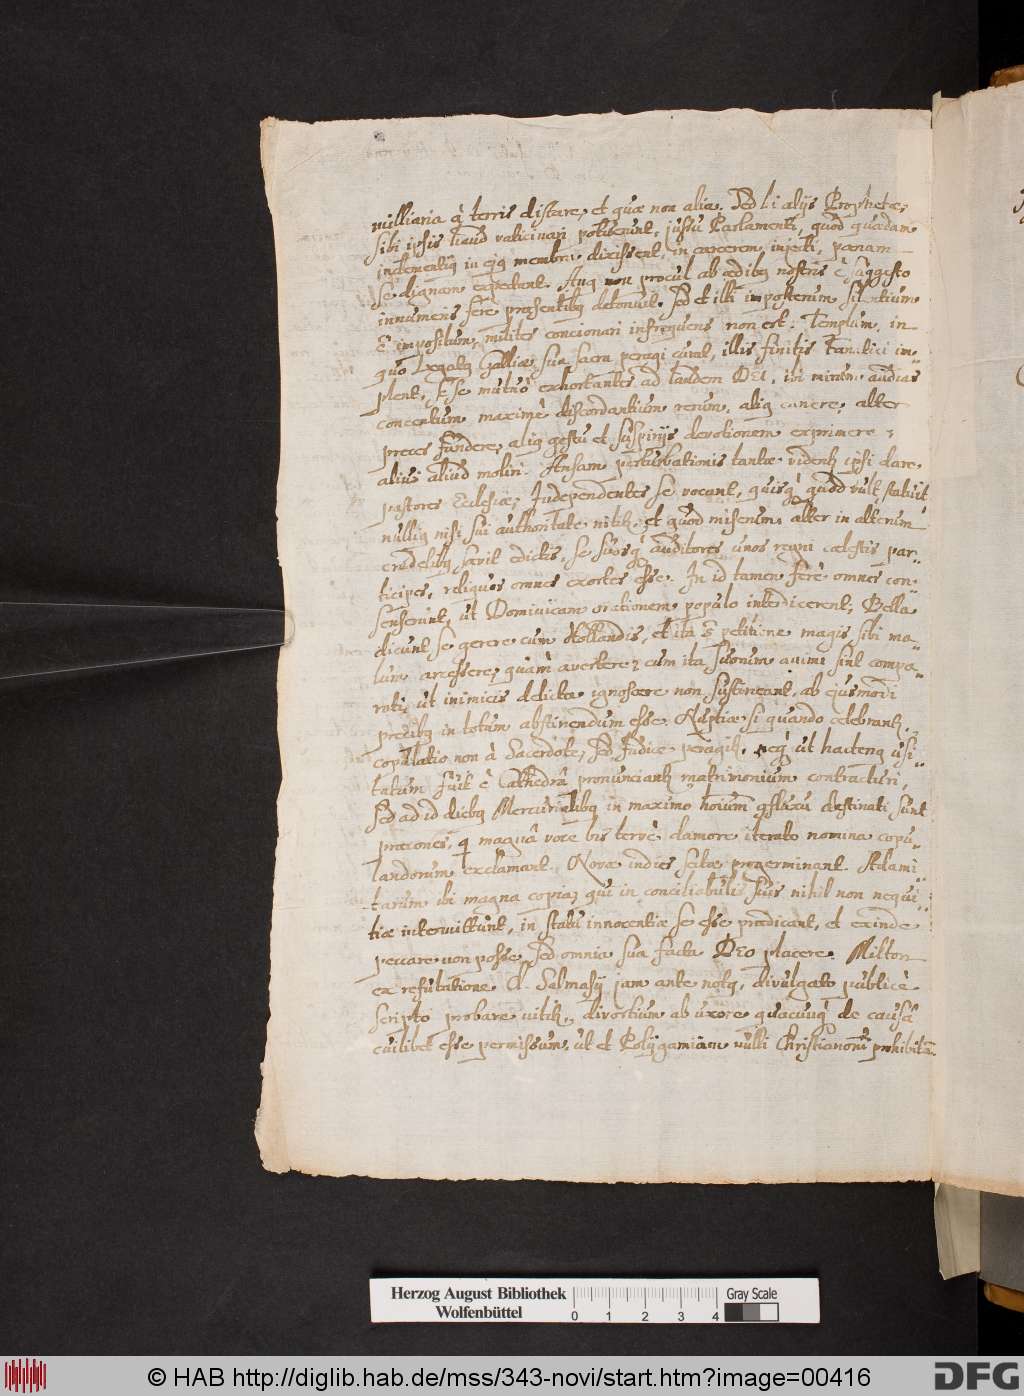 milliaria à terris distare, et quæ non alia. Sed hi alijs Prophetæ,
sibi ipsis haud vaticinari potuerunt, jussu Parlamenti, quod quædam
in ejq membra dixissent, in carcerem injecti, pœnam
se dignam expectant. non procul ab ædibq nostris è suggesto
innumens fere præsentibq detonuit. Sed et illi impostenum silentium
E impositum, milites concionari infrequens non est. Templum, in
quo Legatq Galliæ sua sacra peragi curat, illis finitis Fanatici im-
plent, E se mutuò exhortantes ad laudem DEI, ibi mirum audias
concentum maximè discordantium rerum, aliq canere, alter
preces fundere, aliq gestu et suspirijs devotionem exprimere,
alius aliud moliri. Ansam perturbationis tantæ videntr ipsi dare
pastores Ecclesiæ, Independentes se vocant, quisq quod vult statuit
nulliq nisi sui authoritate nititr, et quod miserum, alter in alterum
crudelibq sævit edictis, se suosq auditores unos regni cælestis par-
ticipes, reliquos omnes exortes esse. In id tamen ferè omnes con-
senserunt, ut Dominicam orationem populo interdicerent, Bella
dicunt se gerere cum Hollandis, et ita petitione magis sibi ma-
lum arcessere, quàm avertere, cum ita suorum animi sint compa-
rati, ut inimicis delicta ignoscere non sustineant, ab ejusmodi
precibq in totum abstinendum esse. Nuptiæ si quando celebrantr,
copulatio non à Sacerdote, sed Judice peragitr, neq ut hactenq usi-
tatum fuit è Cathedrâ pronunciantr matrimonium contracturi,
Sed ad id diebq Mercurialibq in maximo hominum cflüxu destinati sunt
præcones, q magnâ voce bis tervè clamore iterato nomina copu-
landorum exclamant. Novæ indies sectæ progerminant. Adami-
tarum ibi magna copia, qui in conciliabulis suis nihil non nequi-
tiæ intermittunt, in statu innocentiæ se esse prædicant, et exinde
peccare non posse, sed omnia sua facta DEO placere. Milton
ex refutatione Cl. Salmasij jam ante notq, divulgato publicè
scripto probare nititr, divortium ab uxore quacunq de causâ
cuilibet esse permissum, ut et Polygamiam nulli Christianorum prohibitā.
Herzog August Bibliothek
Wolfenbüttel
0 1 2 3 4
Gray Scale
© HAB http://diglib.hab.de/mss/343-novi/start.htm?image=00416
DFG